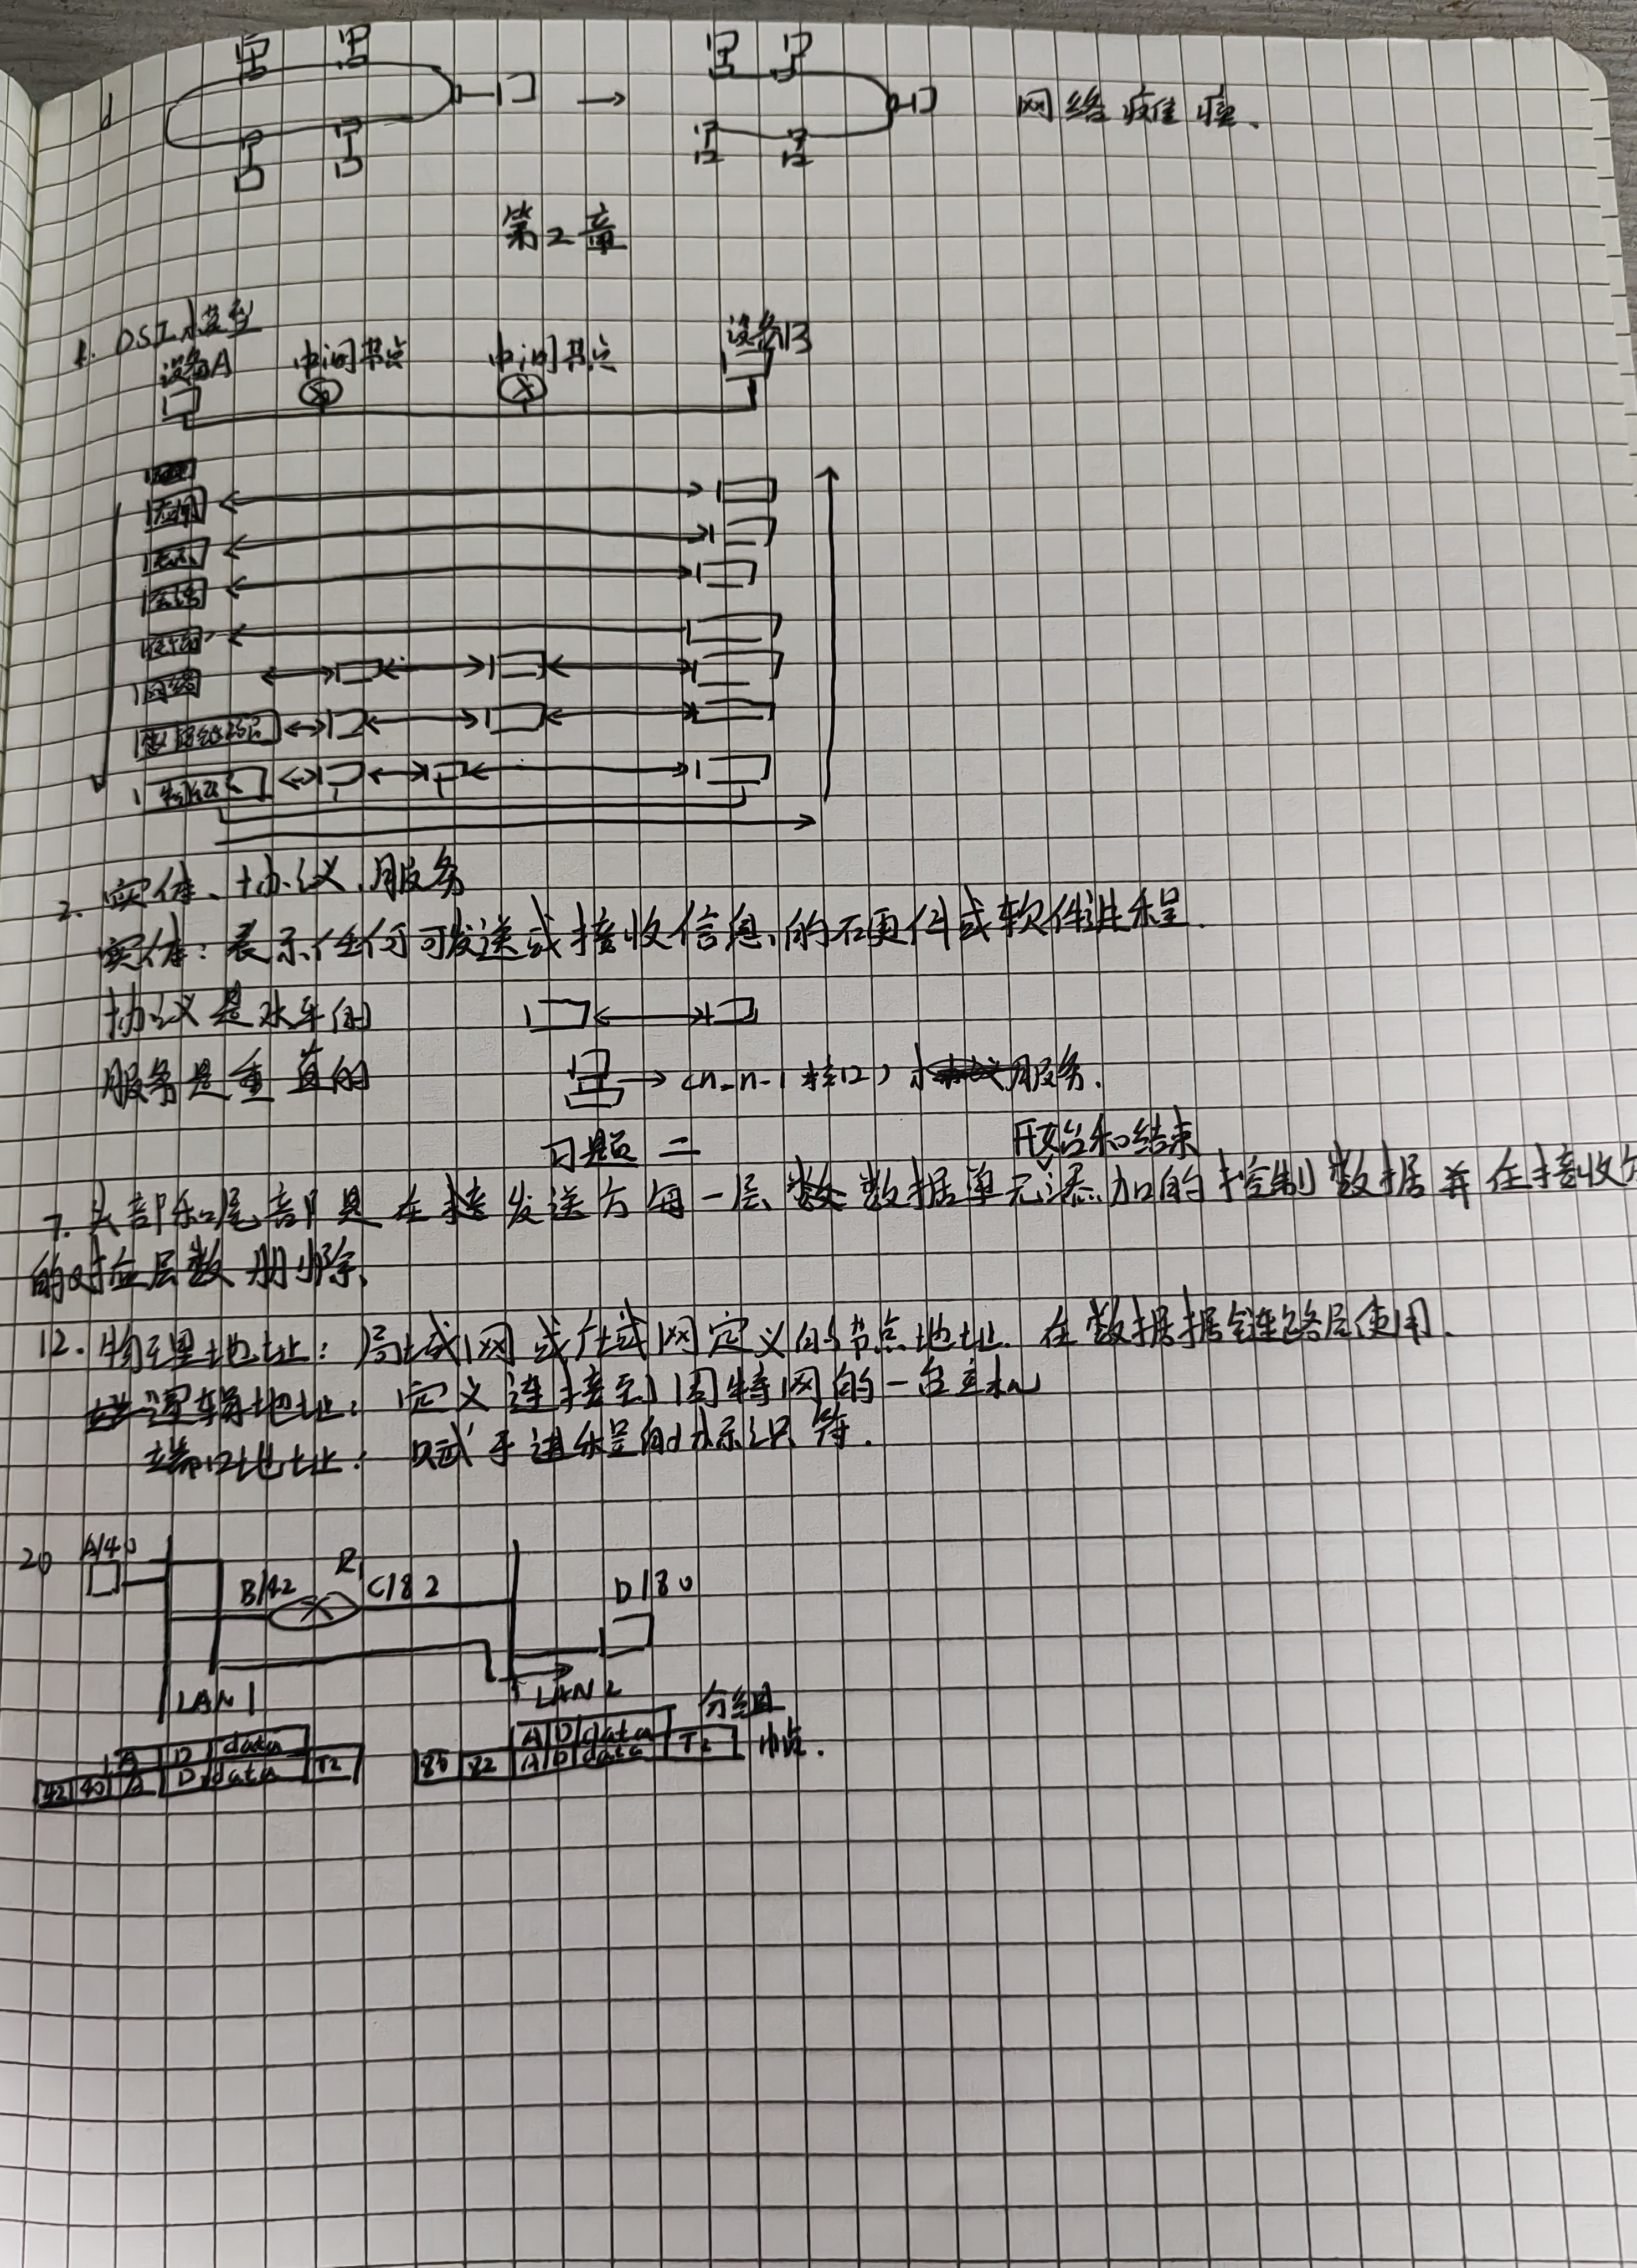 d
网络瘫痪、
第2章
1. OSI模型
设备A 中间节点 中间节点 设备B
应用
表示
会话
网络
数据链路层
物理层
2. 实体、协议、服务
实体：表示任何可发送或接收信息的硬件或软件进程.
协议是水平的
服务是垂直的
<n_n-1接口> 服务.
习题二
开始和结束
7. 头部和尾部是在发送方每一层数据单元添加的控制数据并在接收方
的对应层数删除、
12. 物理地址：局域网或广域网定义的节点地址. 在数据据链路层使用.
逻辑地址：定义连接到因特网的一台主机
端口地址：赋予进程的标识符.
20 A/40
R1
B/42 C/82 D/80
LAN1 LAN2
分组
A D data A D data
42 40 A D data T2 80 82 A D data T2 帧.